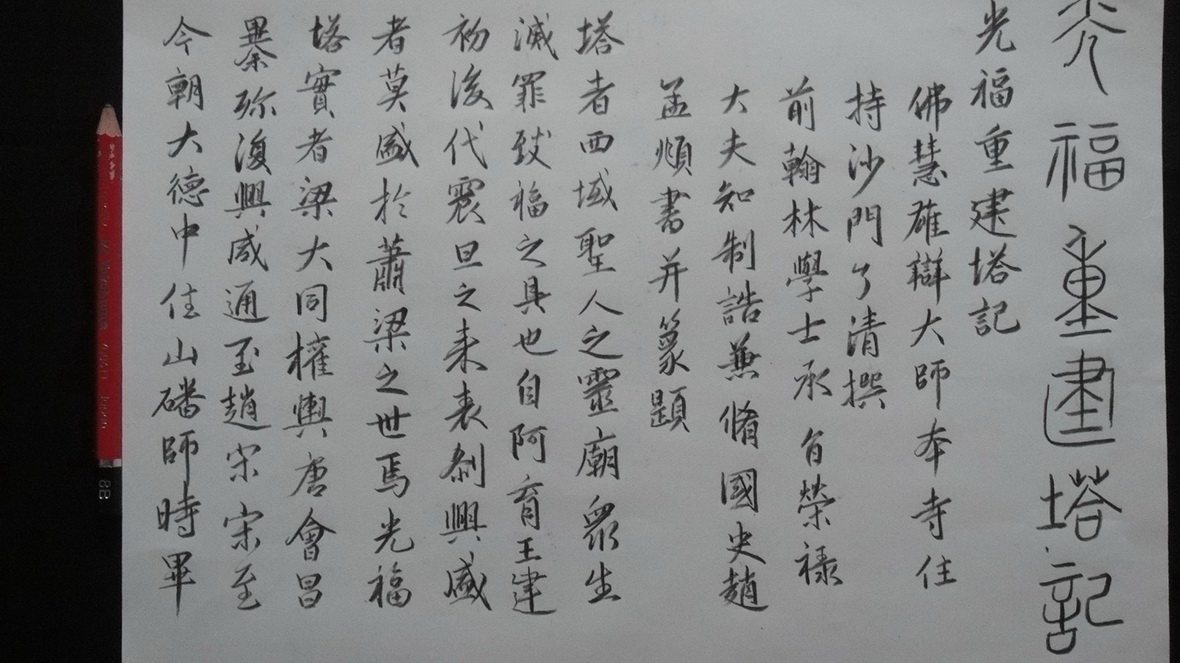 光福重建塔記
光福重建塔記
佛慧雄辯大師本寺住
持沙門了清撰
前翰林學士承旨榮祿
大夫知制誥兼脩國史趙
孟頫書并篆題
塔者西域聖人之靈廟眾生
滅罪致福之具也自阿育王建
初後代震旦之来表剎興盛
者莫盛於蕭梁之世焉光福
塔實者梁大同權輿唐會昌
弥復興咸通至趙宋宋至
今朝大德中住山磻師時畢
8B